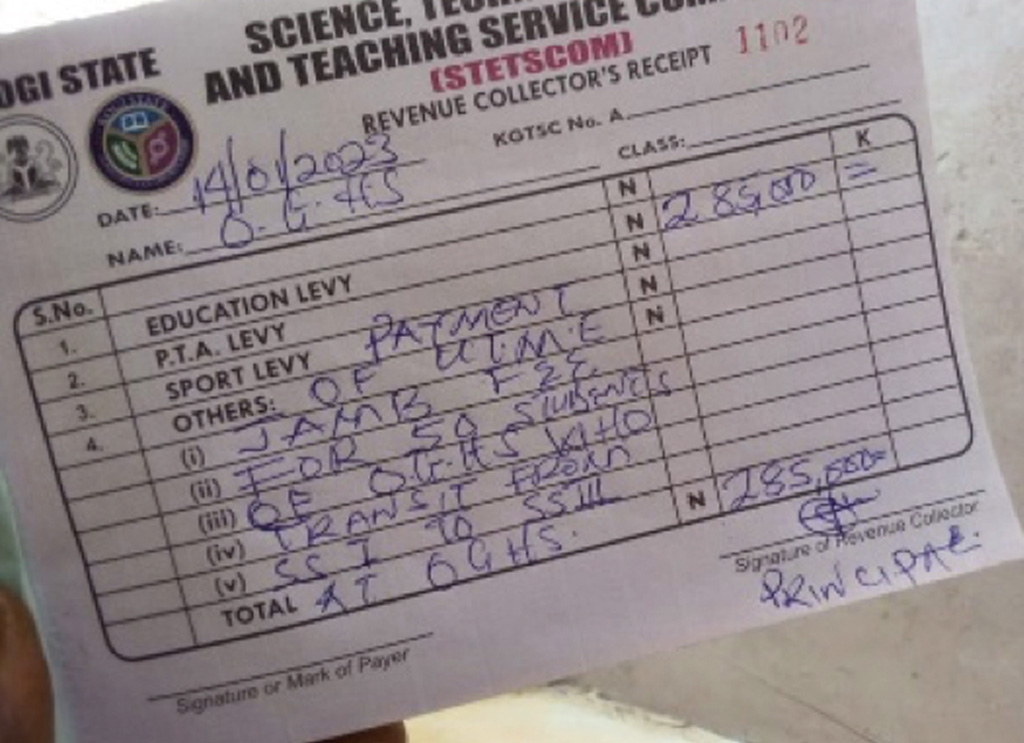 OGI STATE
SCIENCE, TECH
AND TEACHING SERVICE COM
(STETSCOM)
REVENUE COLLECTOR'S RECEIPT 1102
KGTSC No. A
DATE: 14/01/2023
CLASS:
NAME: O.G.HS
S.No. N K
1. EDUCATION LEVY N 285,000 =
2. P.T.A. LEVY N
3. SPORT LEVY PAYMENT N
4. OTHERS: OF UTME N
(i) JAMB FEE
(ii) FOR 50 STUDENTS
(iii) OF OGHS WHO
(iv) TRANSIT FROM
(v) SS I TO SSIII
TOTAL AT OGHS. N 285,000=
Signature of Revenue Collector
PRINCIPAL
Signature or Mark of Payer